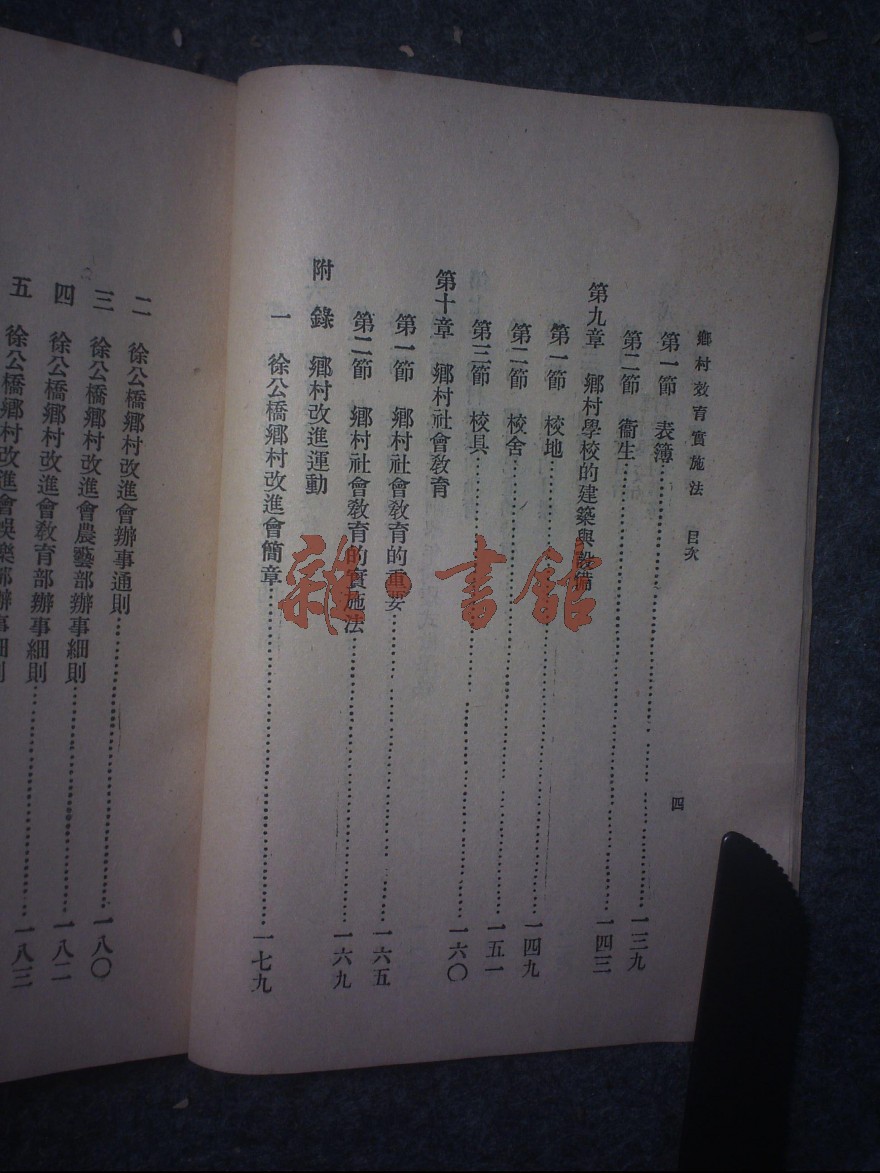 鄉村教育實施法 目次 四
第一節 表簿……一三九
第二節 衞生……一四三
第九章 鄉村學校的建築與設備
第一節 校地……一四九
第二節 校舍……一五一
第三節 校具……一六〇
第十章 鄉村社會教育
第一節 鄉村社會教育的重要……一六五
第二節 鄉村社會教育的實施法……一六九
附錄 鄉村改進運動
一 徐公橋鄉村改進會簡章……一七九
二 徐公橋鄉村改進會辦事通則……一八〇
三 徐公橋鄉村改進會農藝部辦事細則……一八二
四 徐公橋鄉村改進會教育部辦事細則……一八三
五 徐公橋鄉村改進會娛樂部辦事細則
雜·書館